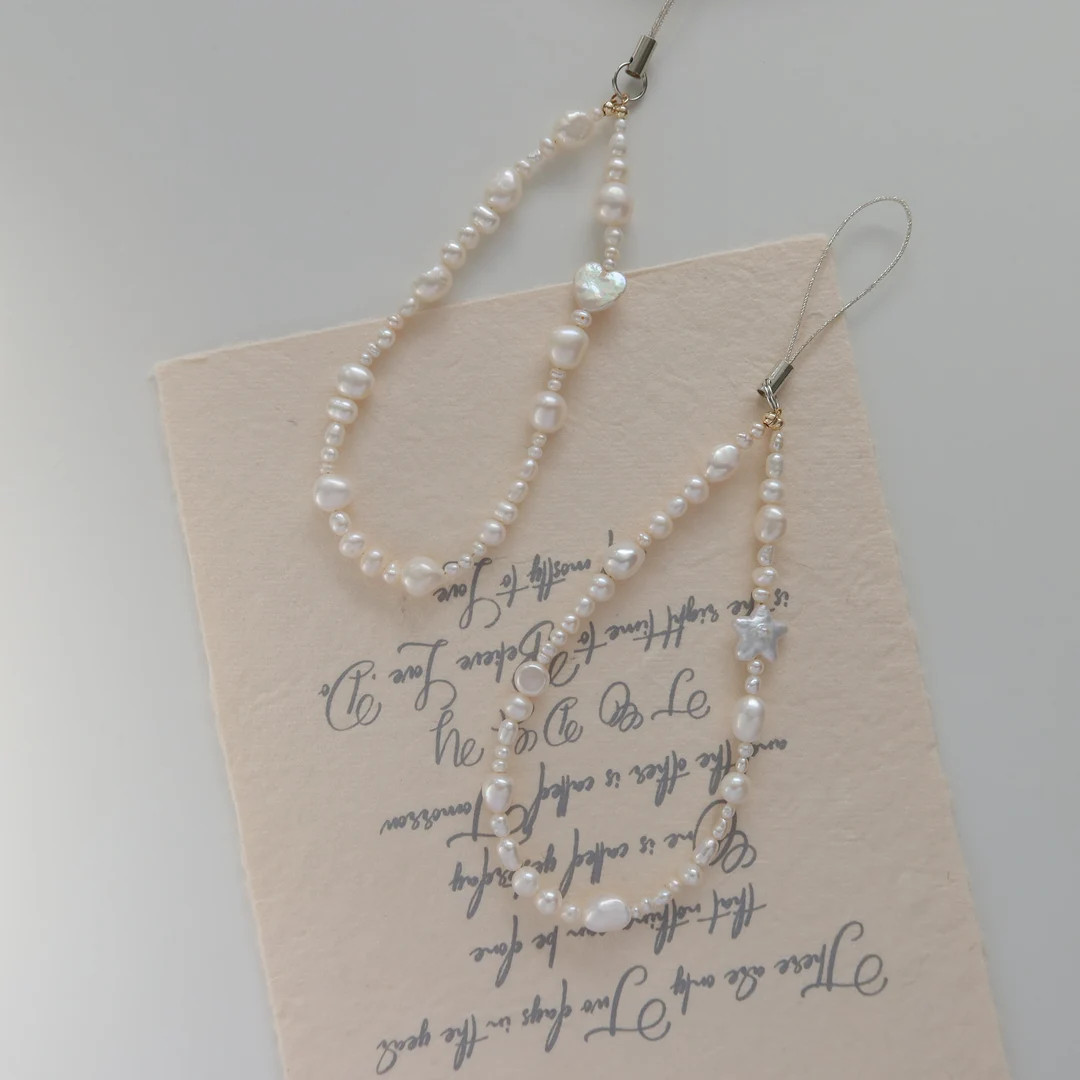 There are only Two days in the year
that nothing can be done
One is called yesterday
and the other is called Tomorrow
TO DAY
is the right time to Believe Love .Do
mostly to Love